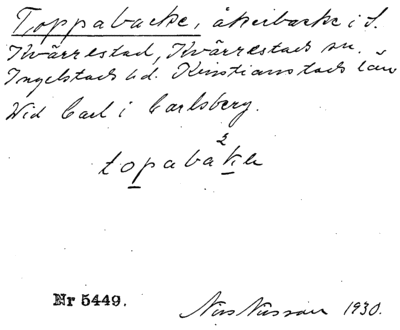 Toppabacke, åkerbacke i S.
Kvärrestad, Kvärrestads sn.
Ingelstads hd. Kristianstads län
Vid Carl i Carlsberg.
2
topabaka
Nr 5449.
Nils Nilsson 1930.